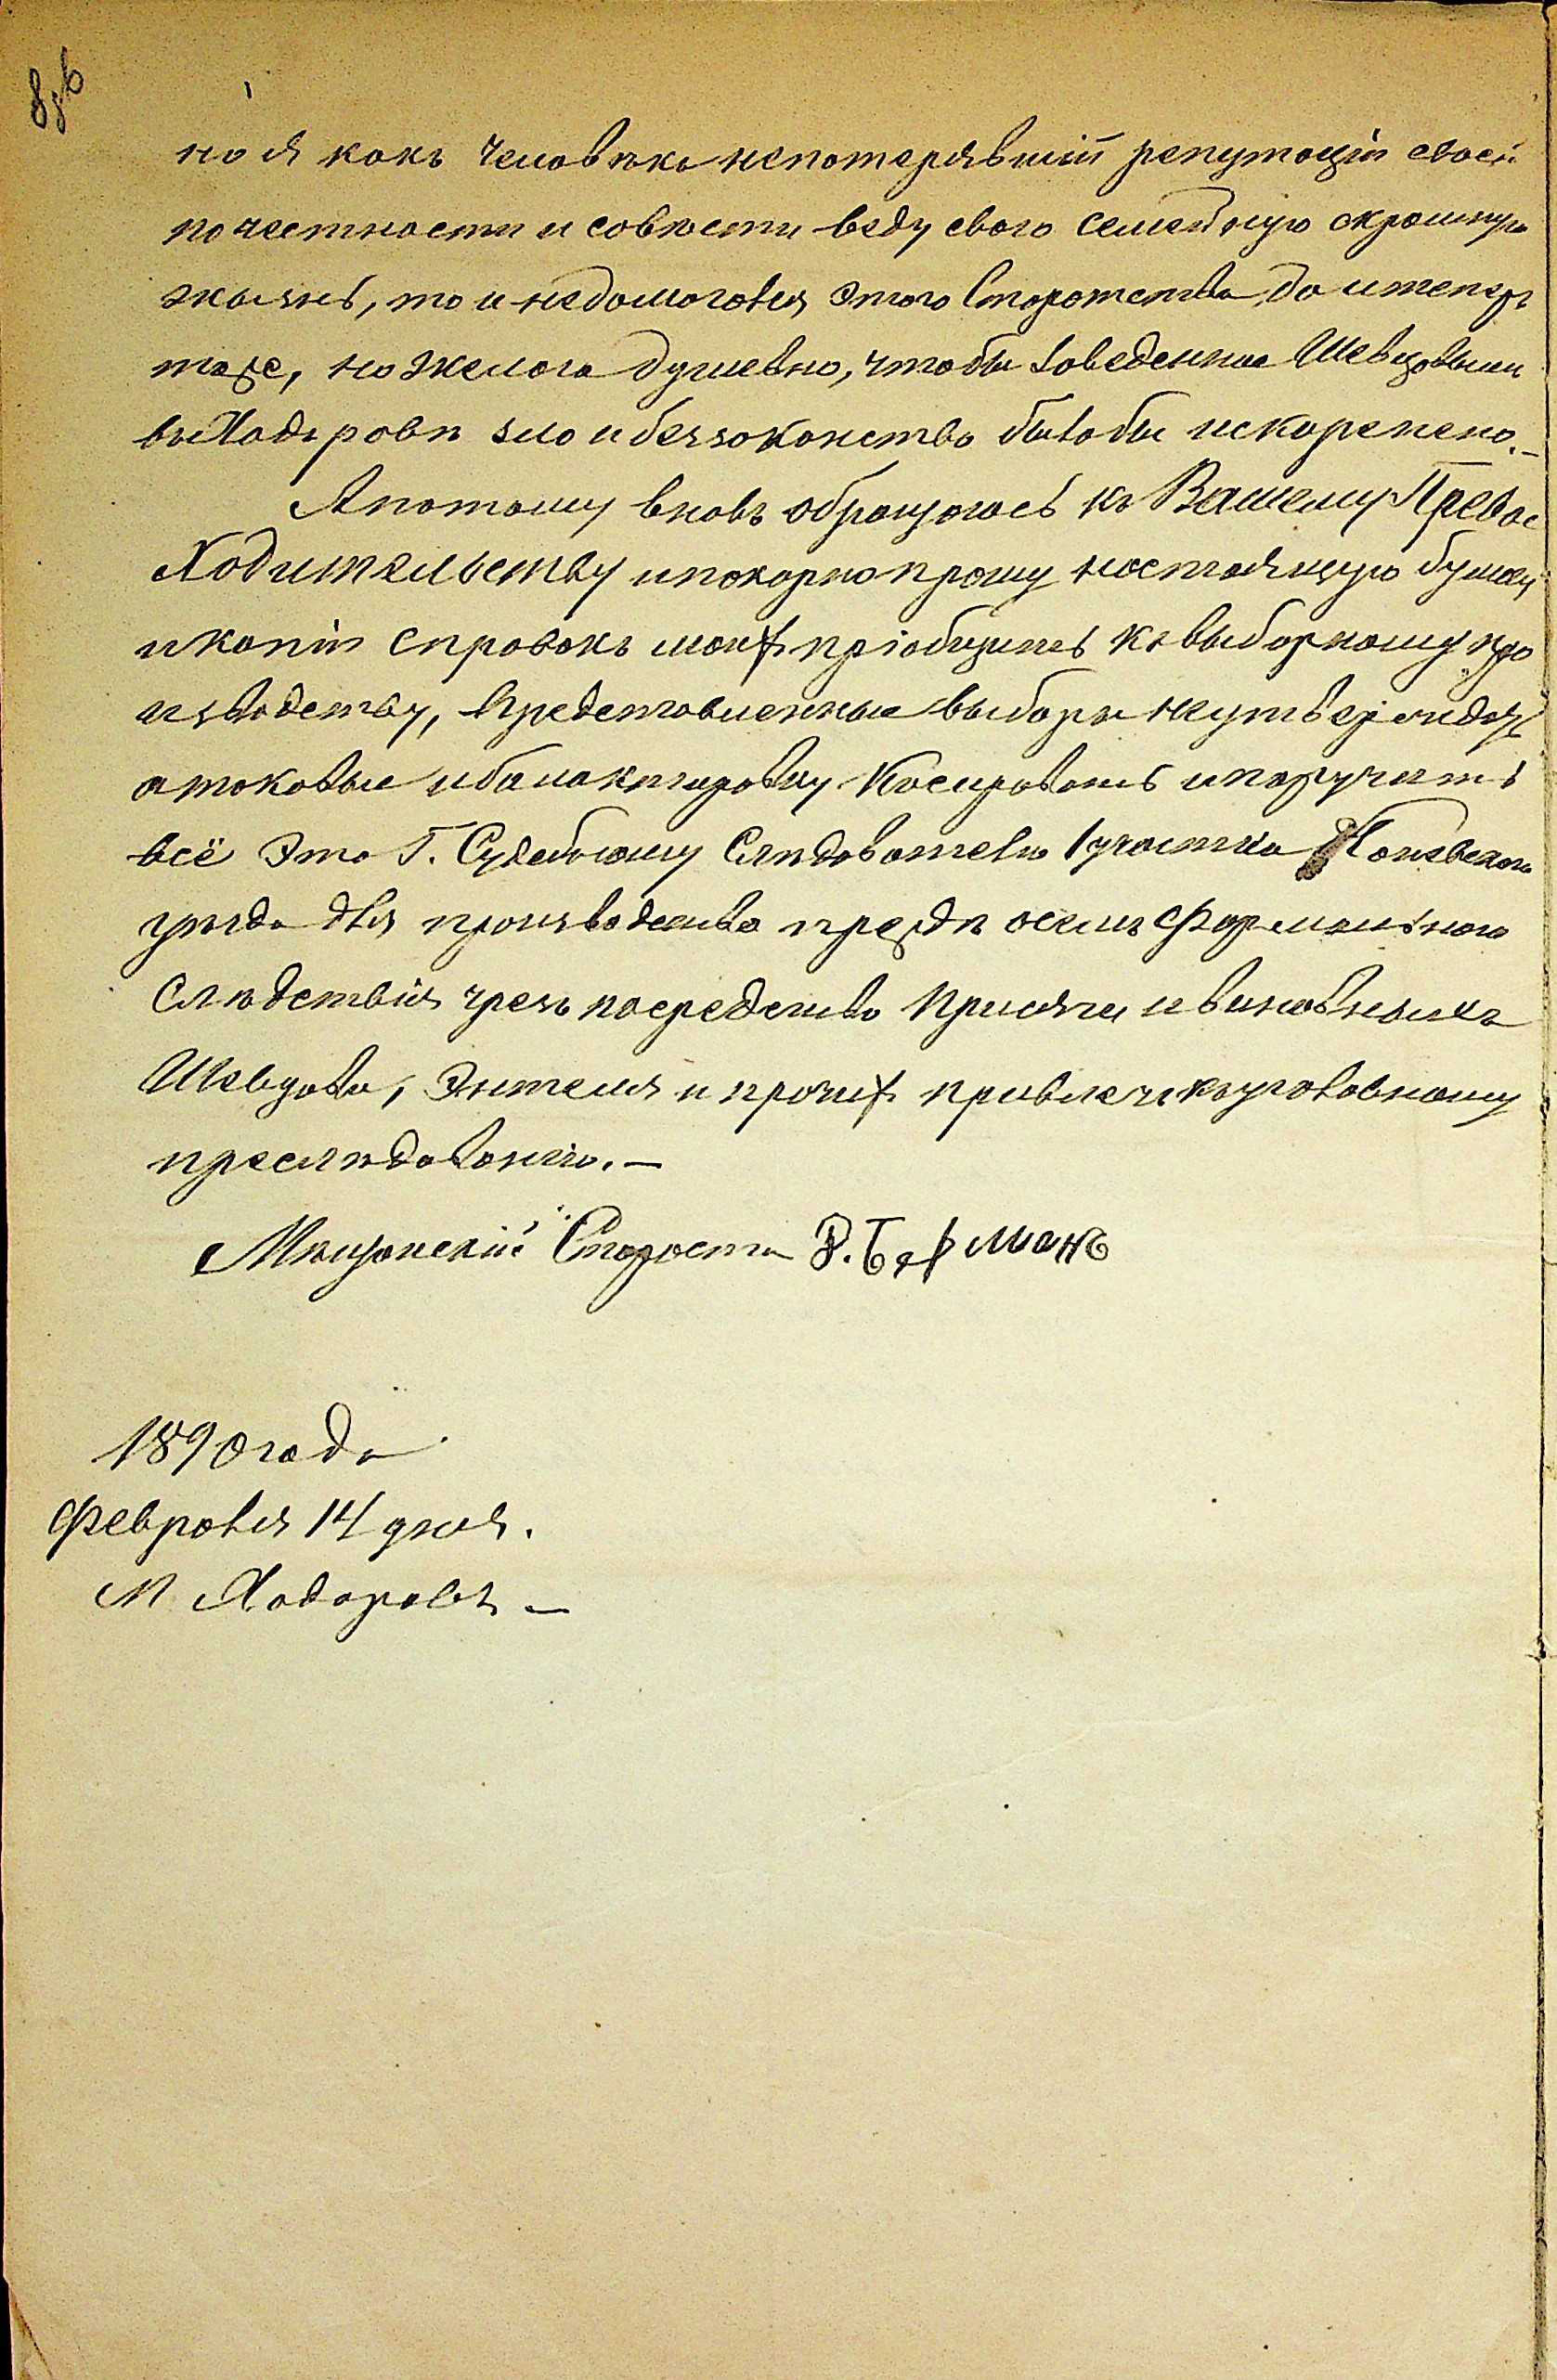 но я какъ человѣкъ непотерявшій репутаціи своей
по честности и совѣсти веду свою семейную скромную
жызнь, то и недомогаюся этого Старотства, да и теперь
тоже, но желаю душевно, чтобы заведенное Шевцовымъ
въ Ходоровѣ зло и беззоконство было бы искоренено.—
А потому вновь обращаюсь къ Вашему Превос
Ходительству и покорно прошу настоящую бумагу
и копіи справокъ моихъ пріобщить къ выборному про
изводству, представленные выборы неутверждать
а таковые и балактировку Косировать и поручить
всё это Г. Судебному Слѣдователю 1 участка Каневскаго
уѣзда для производства предъ осемъ формальнаго
Слѣдствія чрезъ посредство присяги и виновныхъ
Шевцова, Энтеля и прочихъ привлечи къ уголовному
преслѣдованію.—
Мѣщанскій Староста З. Берманъ
1890 года
Февраля 14 дня.
М Ходоровъ —